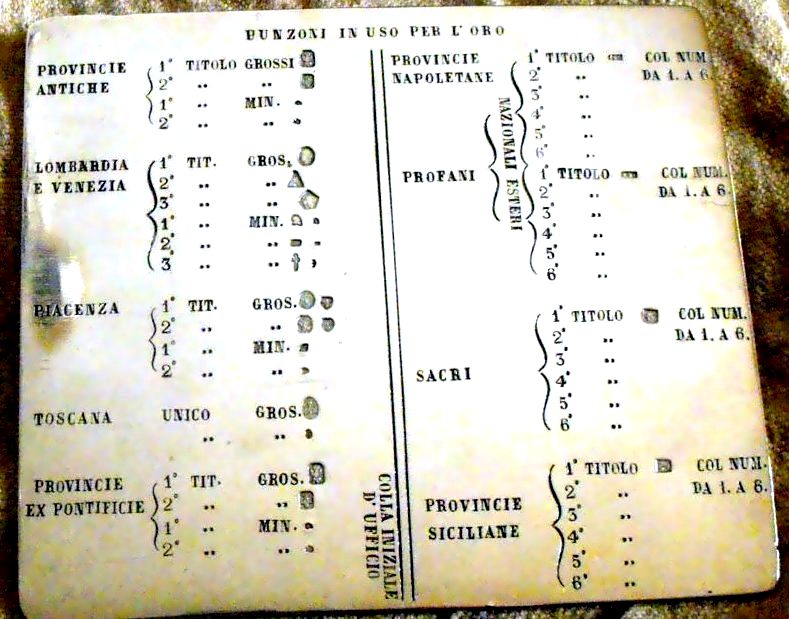 PUNZONI IN USO PER L'ORO
PROVINCIE
ANTICHE
1° TITOLO GROSSI
2° " "
1° " MIN.
2° " "
LOMBARDIA
E VENEZIA
1° TIT. GROS.
2° " "
3° " "
1° " MIN.
2° " "
3° " "
PIACENZA
1° TIT. GROS.
2° " "
1° " MIN.
2° " "
TOSCANA UNICO GROS.
" "
PROVINCIE
EX PONTIFICIE
1° TIT. GROS.
2° " "
1° " MIN.
2° " "
COLLA INIZIALE
D'UFFICIO
PROVINCIE
NAPOLETANE
1° TITOLO COL NUM.
2° " DA 1. A 6.
3° "
4° "
5° "
6° "
NAZIONALI ESTERI
PROFANI
1° TITOLO COL NUM.
2° " DA 1. A 6.
3° "
4° "
5° "
6° "
SACRI
1° TITOLO COL NUM.
2° " DA 1. A 6.
3° "
4° "
5° "
6° "
PROVINCIE
SICILIANE
1° TITOLO COL NUM.
2° " DA 1. A 6.
3° "
4° "
5° "
6° "